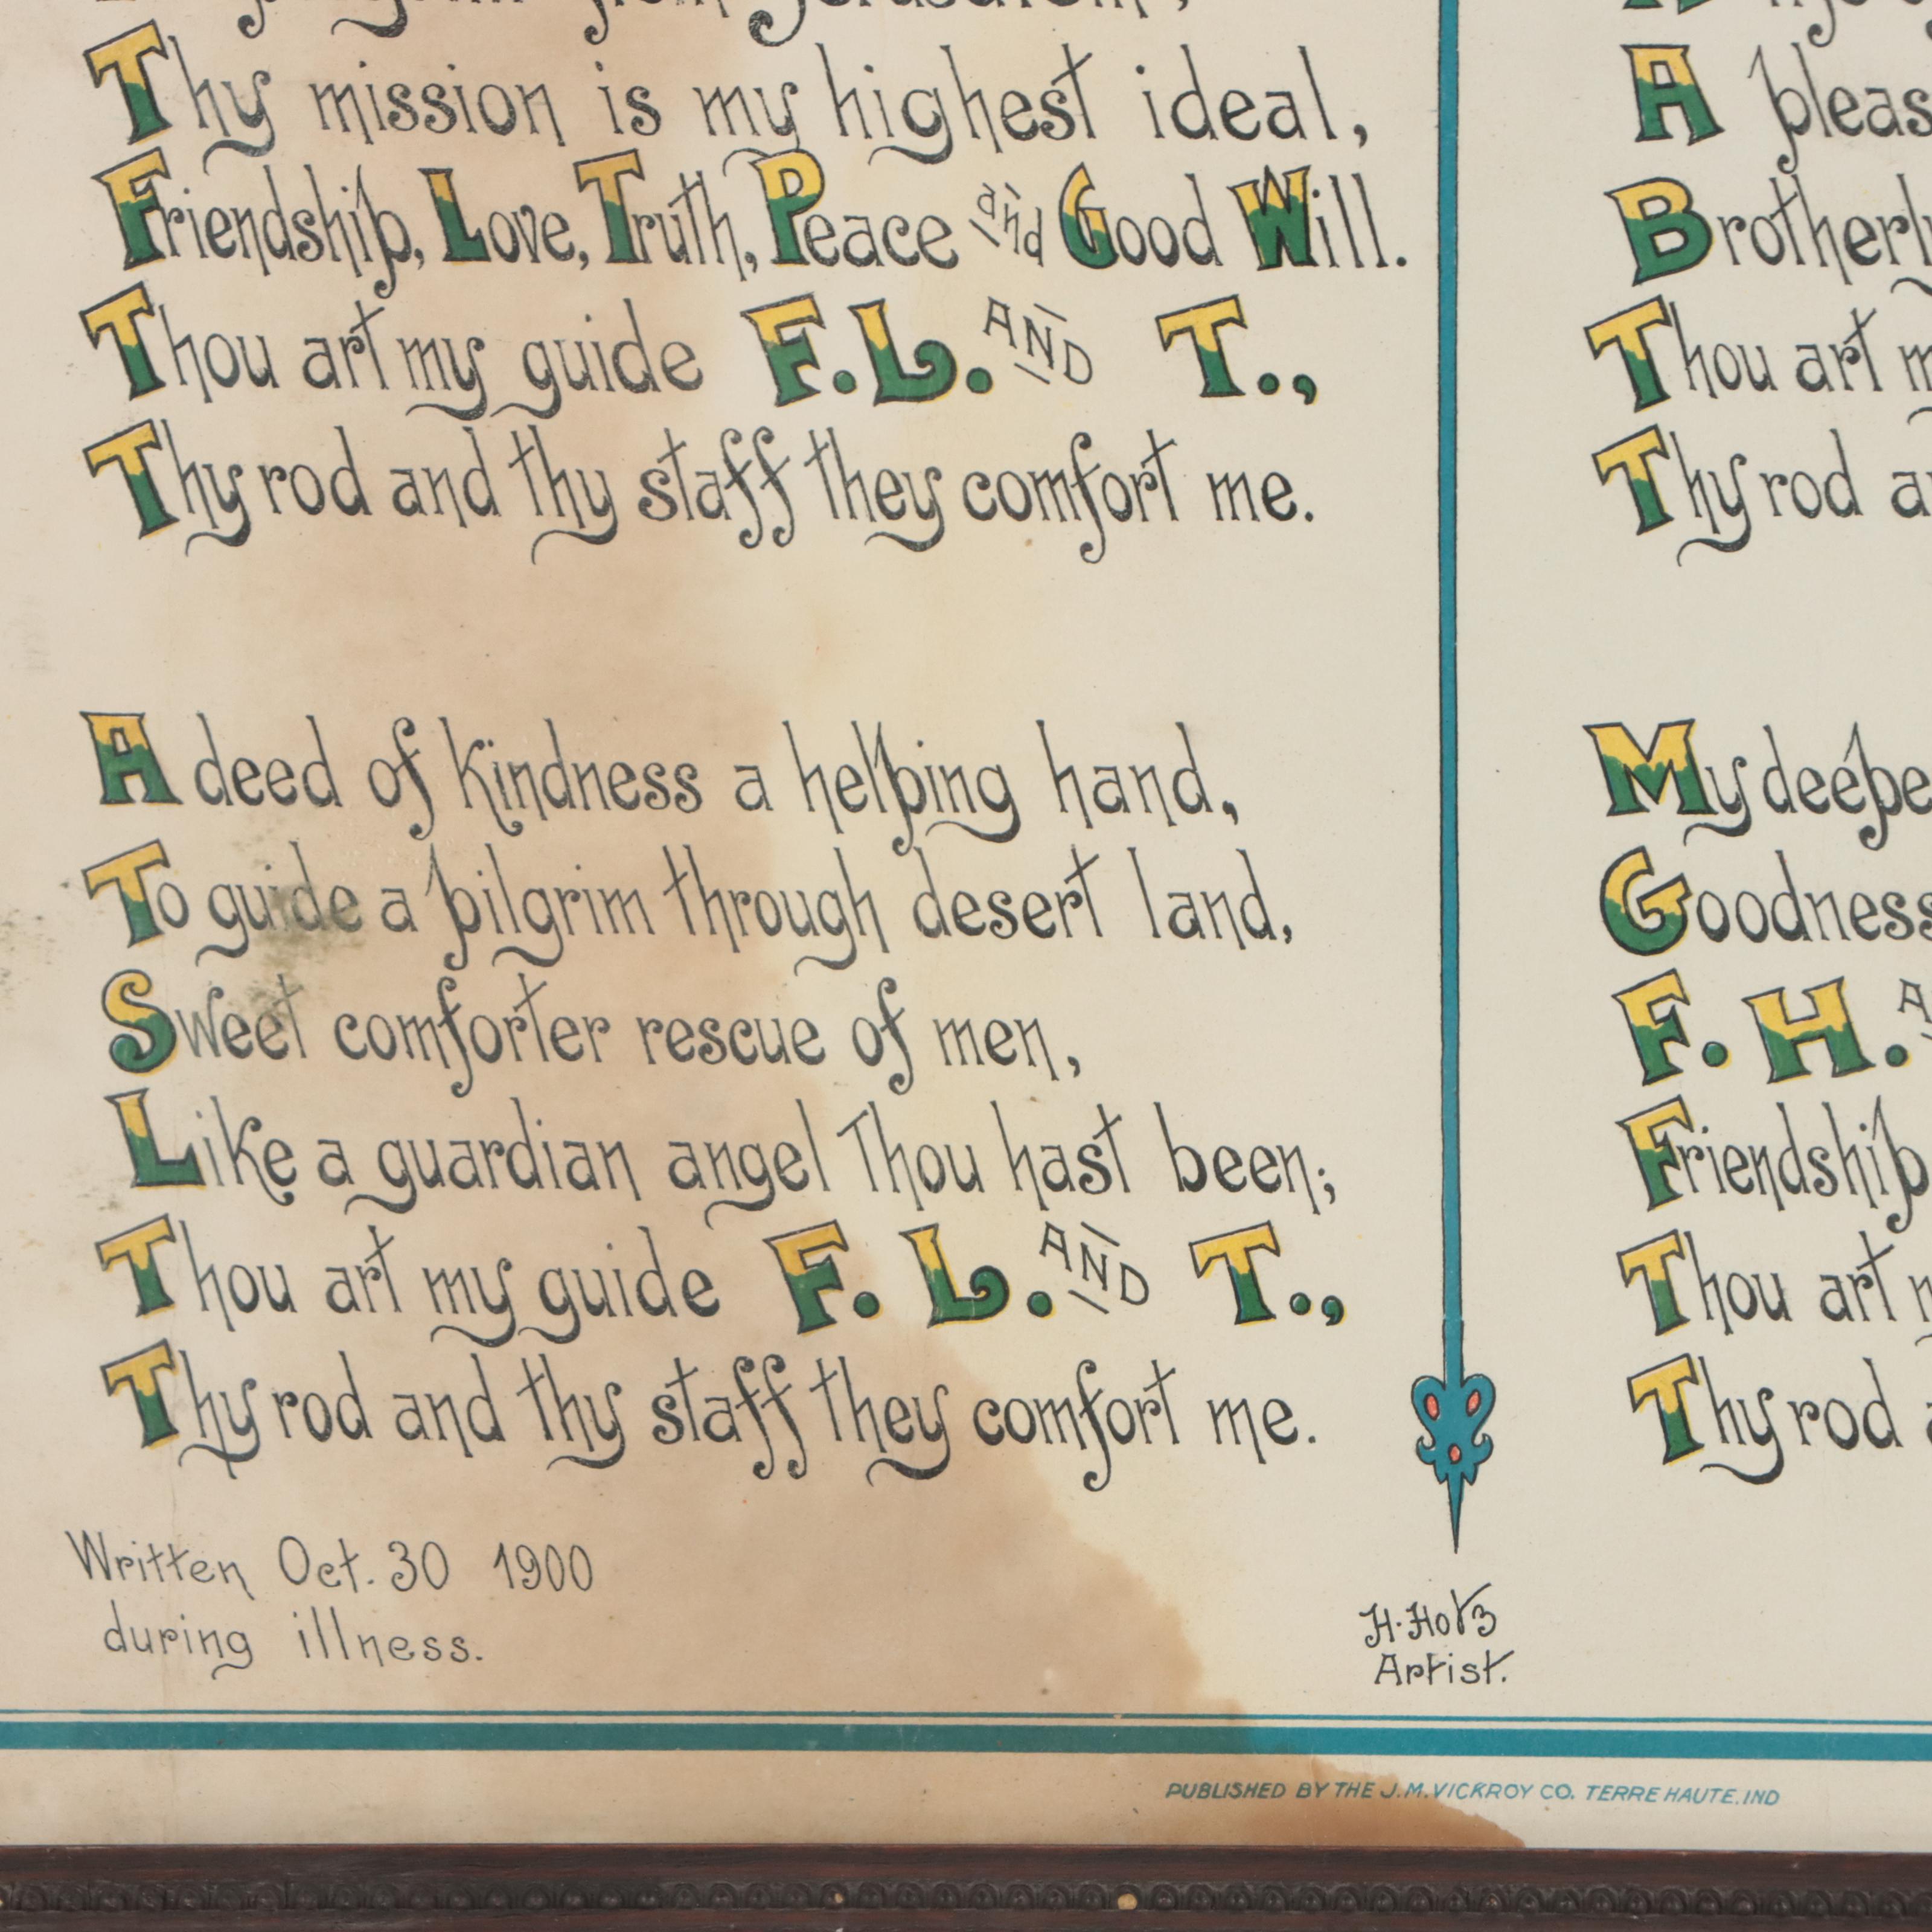 Thy mission is my highest ideal,
Friendship, Love, Truth, Peace and Good Will.
Thou art my guide F. L. AND T.,
Thy rod and thy staff they comfort me.
A deed of kindness a helping hand,
To guide a pilgrim through desert land,
Sweet comforter rescue of men,
Like a guardian angel Thou hast been;
Thou art my guide F. L. AND T.,
Thy rod and thy staff they comfort me.
Written Oct. 30 1900
during illness.
A
Thou art
Thy rod
My
Goodness
F. H.
Friendship
Thou art
Thy rod
H. Hotz
Artist.
PUBLISHED BY THE J.M. VICKROY CO. TERRE HAUTE. IND